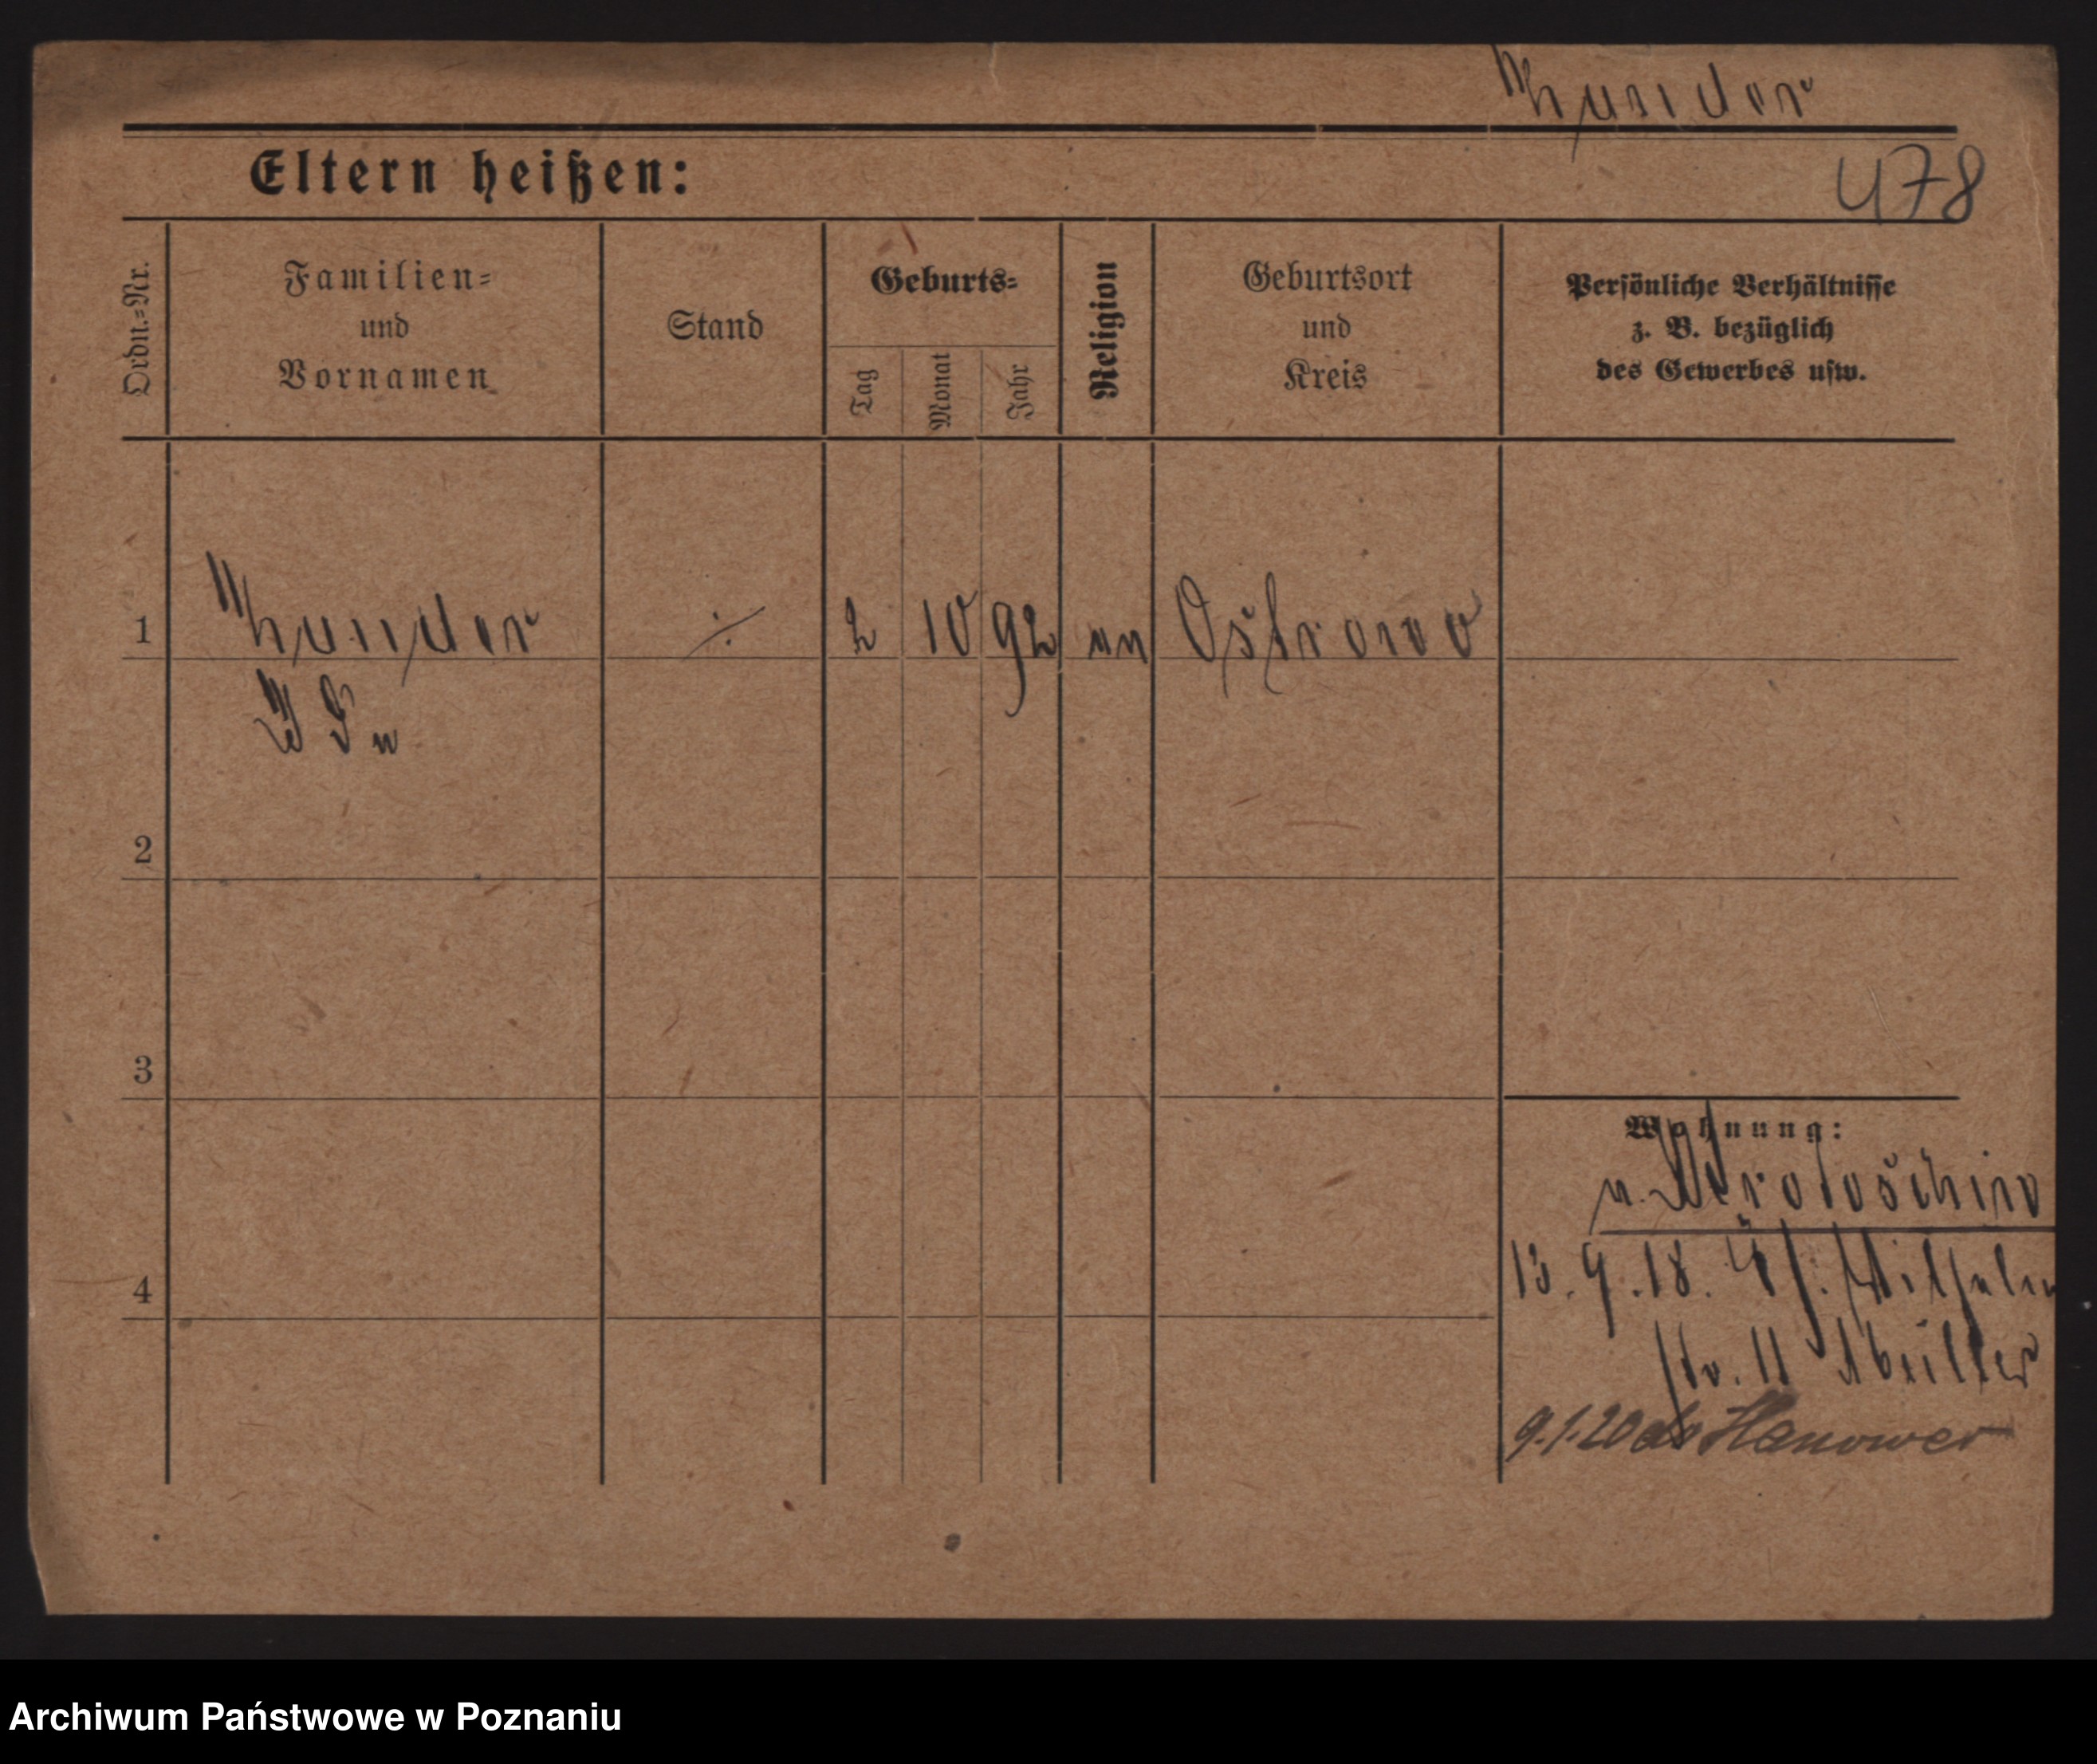 478
Eltern heißen:
Ordn.=Nr.
Familien=
und
Vornamen
Stand
Geburts=
Tag
Monat
Jahr
Religion
Geburtsort
und
Kreis
Persönliche Verhältnisse
z. B. bezüglich
des Gewerbes usw.
1
2 10 92 Ostrowo
2
3
Wohnung:
4
13. 9. 18. Wilhelm
str. 11 Müller
9.1.20 Hanower
Archiwum Państwowe w Poznaniu